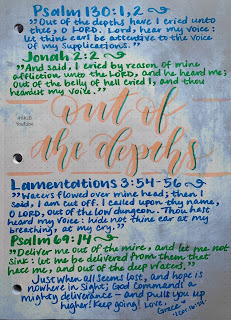 Psalm 130:1,2
"Out of the depths have I cried unto
thee, O LORD. Lord, hear my voice:
let thine ears be attentive to the voice
of my supplications."
Jonah 2:2
"And said, I cried by reason of mine
affliction unto the LORD, and he heard me;
Out of the belly of hell cried I, and thou
heardest my voice."
out of
the depths
Lamentations 3:54-56
"Waters flowed over mine head; then I
said, I am cut off. I called upon thy name,
O LORD, out of the low dungeon. Thou hast
heard my voice: hide not thine ear at my
breathing, at my cry."
Psalm 69:14
"Deliver me out of the mire, and let me not
sink: let me be delivered from them that
hate me, and out of the deep waters."
Just when all seems lost, and hope is
nowhere in sight; God commands a
mighty deliverance - and pulls you up
higher! Keep going! Love,
Grace